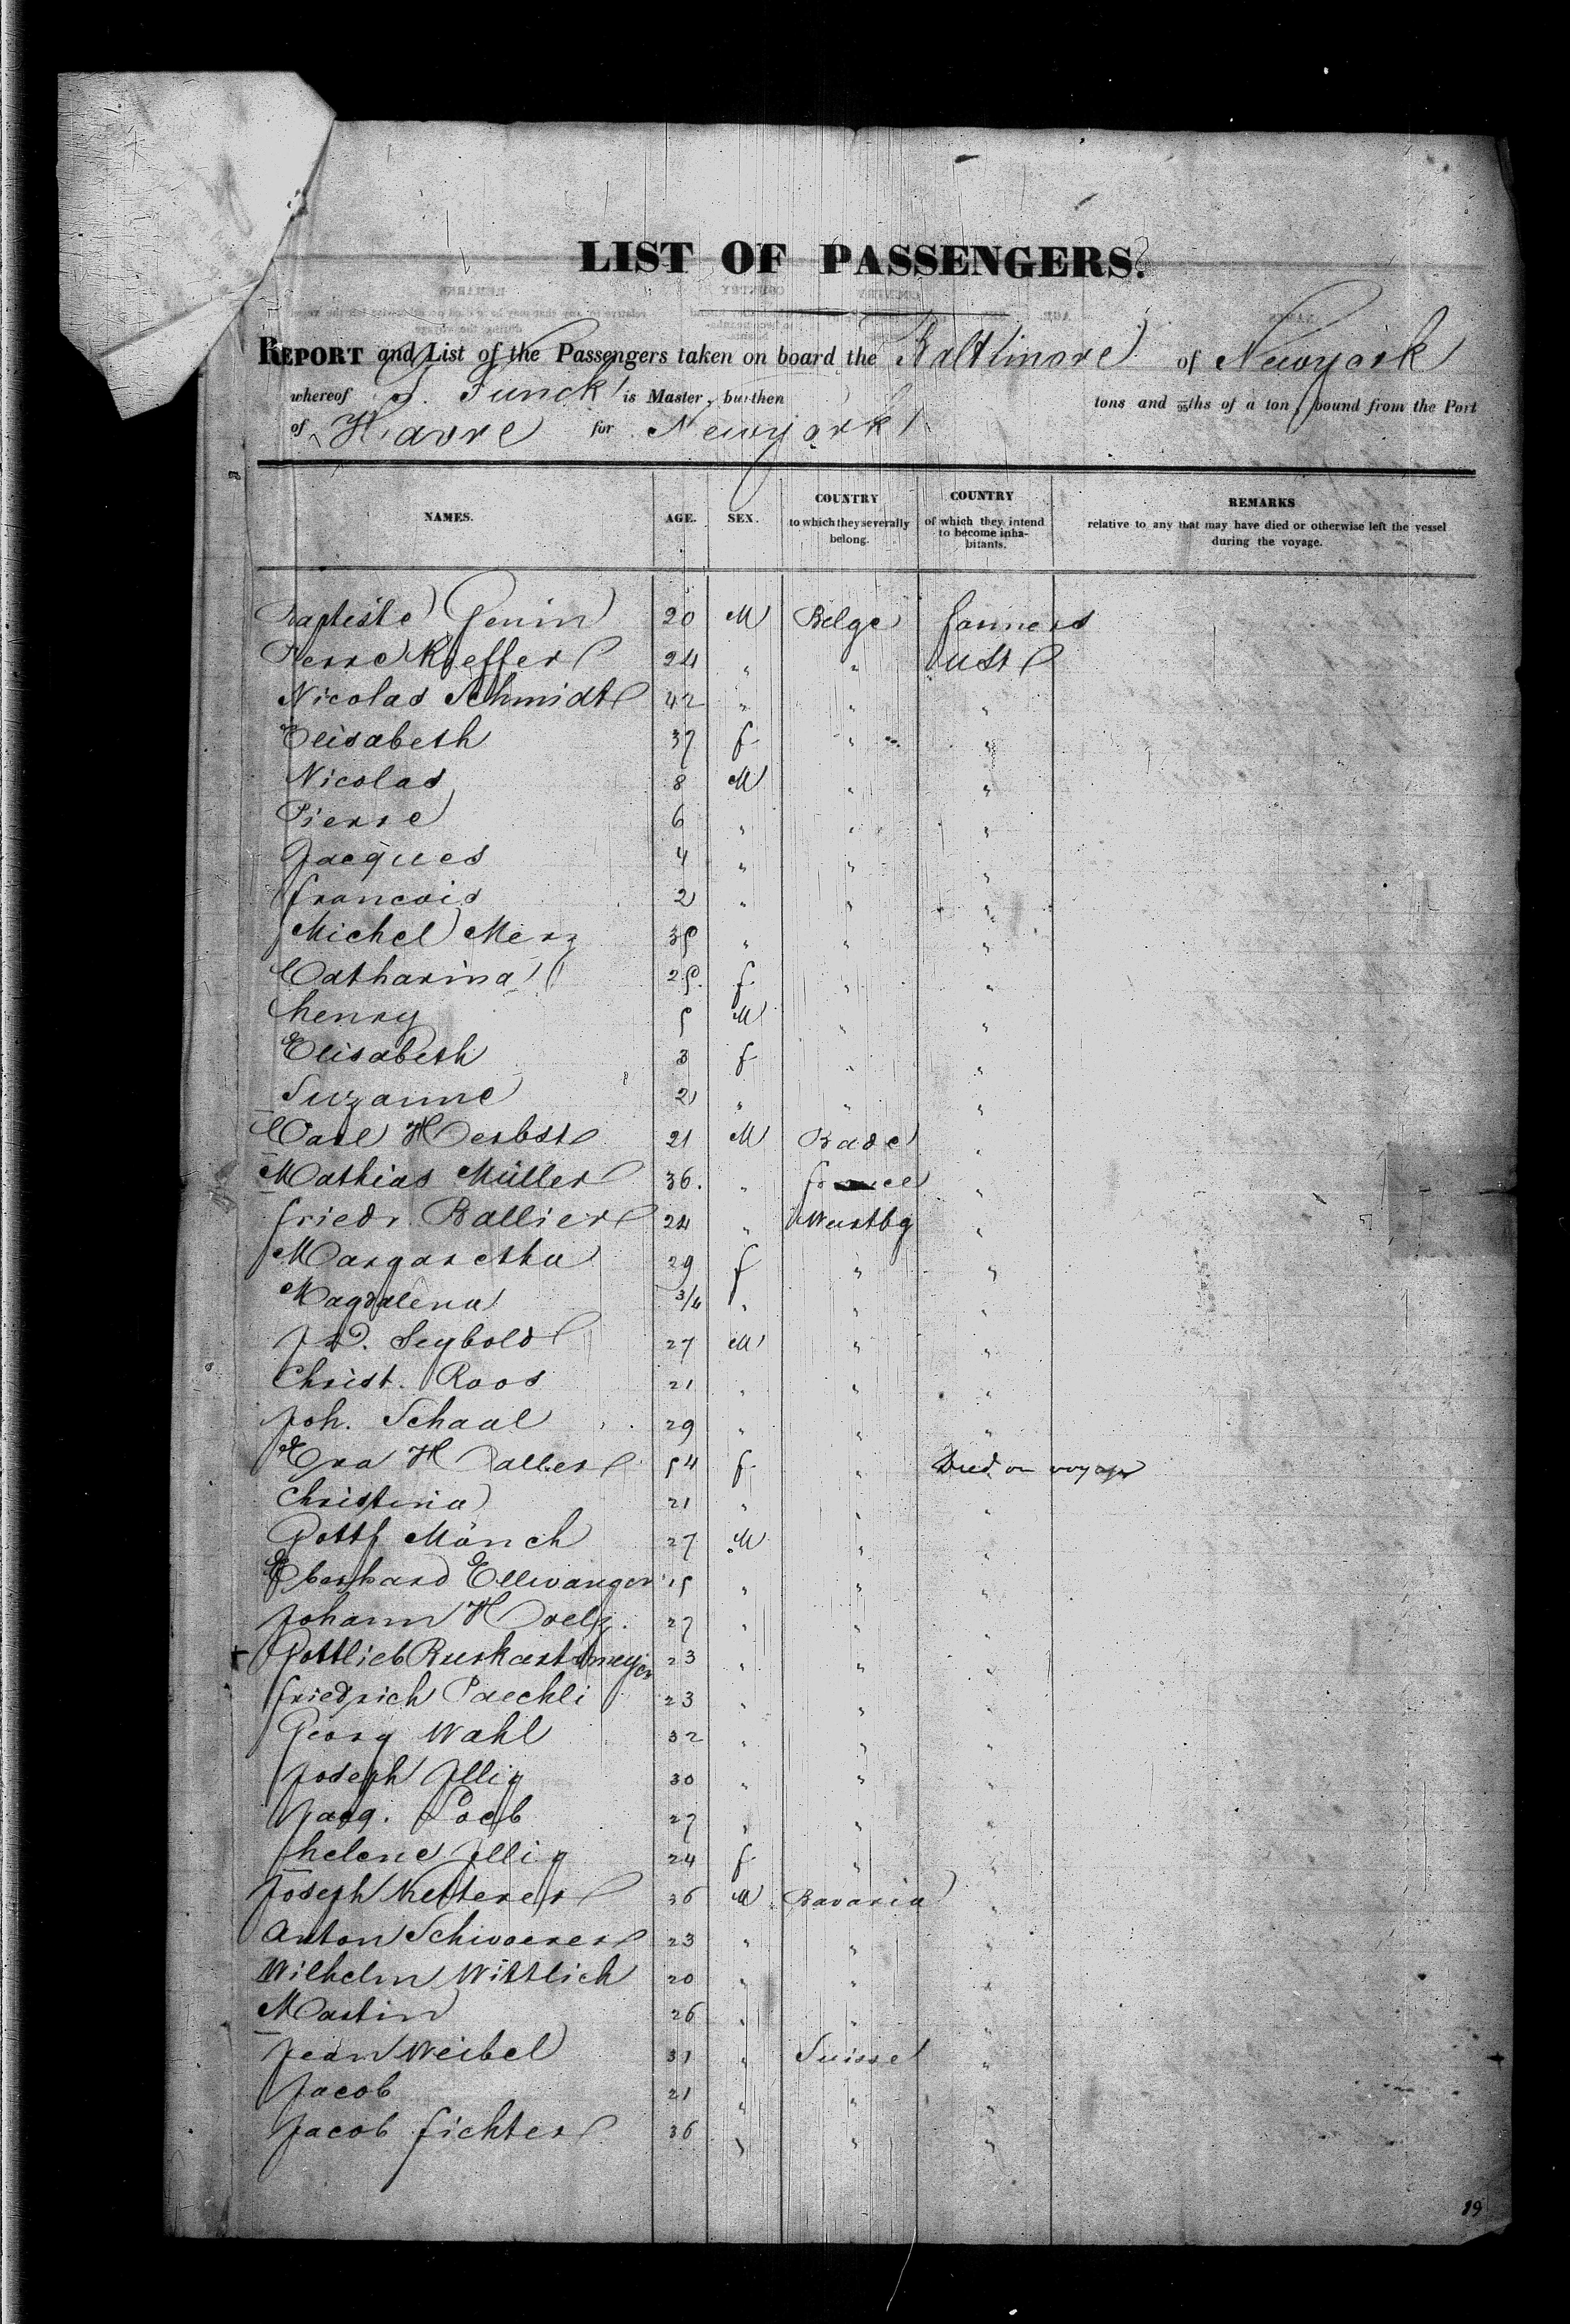 LIST OF PASSENGERS.
REPORT and List of the Passengers taken on board the Baltimore of Newyork
whereof J. Funck is Master, burthen tons and 95ths of a ton, bound from the Port
of Havre for Newyork
NAMES. AGE. SEX. COUNTRY to which they severally belong. COUNTRY of which they intend to become inhabitants. REMARKS relative to any that may have died or otherwise left the vessel during the voyage.
Baptiste Genin 20 M Belge farmers
Pierre Kieffer 24 " " USt
Nicolas Schmidt 42 " " "
Elisabeth 37 f " "
Nicolas 8 M " "
Pierre 6 " " "
Jacques 4 " " "
francois 2 " " "
Michel Merz 35 " " "
Catharina 25. f " "
henry 5 M " "
Elisabeth 3 f " "
Suzanne 2 " " "
Carl Herbst 21 M Bade "
Mathias Müller 36. " france "
friedr. Ballier 24 " Wurtbg "
Margaretha 29 f " "
Magdalena 3/4 " " "
J D. Seybold 27 M " "
Christ. Roos 21 " " "
Joh. Schaal 29 " " "
Eva Haller 54 f " Died on voyage
Christina 21 " " "
Gottf Mönch 27 M " "
Eberhard Ellwanger 15 " " "
Johann Hoelz. 27 " " "
+ Gottlieb Burkartsmeyer 23 " " "
friedrich Paechli 23 " " "
Georg Wahl 32 " " "
Joseph Illig 30 " " "
Jacq. Loeb 27 " " "
helene Illig 24 f " "
Joseph Ketterer 36 M Bavaria "
Anton Schwoerer 23 " " "
Wilhelm Wittlich 20 " " "
Martin 26 " " "
Jean Weibel 31 " Suisse "
Jacob 21 " " "
Jacob fichter 36 " " "
89